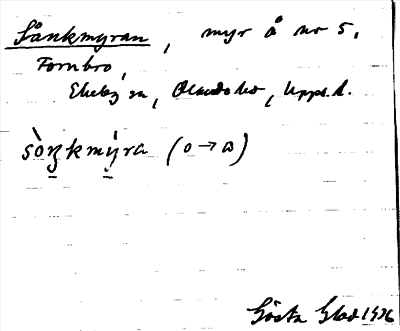 Sånkmyran, myr å nr 5.
Fornbro,
Ekeby sn, Olands hd, Uppl. l.
sòŋkmỳra (o → a)
Gösta Glad 1936